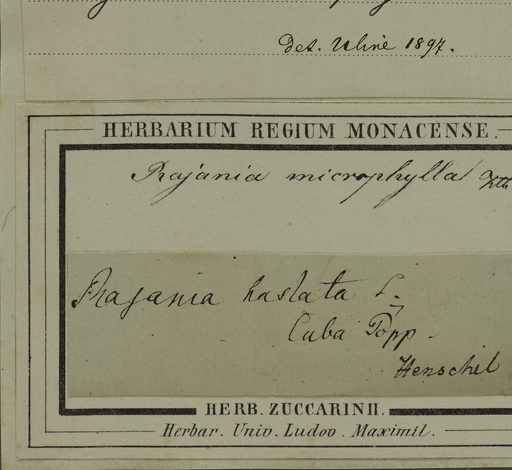 Det. Uline 1897.
HERBARIUM REGIUM MONACENSE.
Rajania microphylla Kth
Rajania hastata L.
Cuba Pöpp.
Henschel
HERB. ZUCCARINII.
Herbar. Univ. Ludov. Maximil.